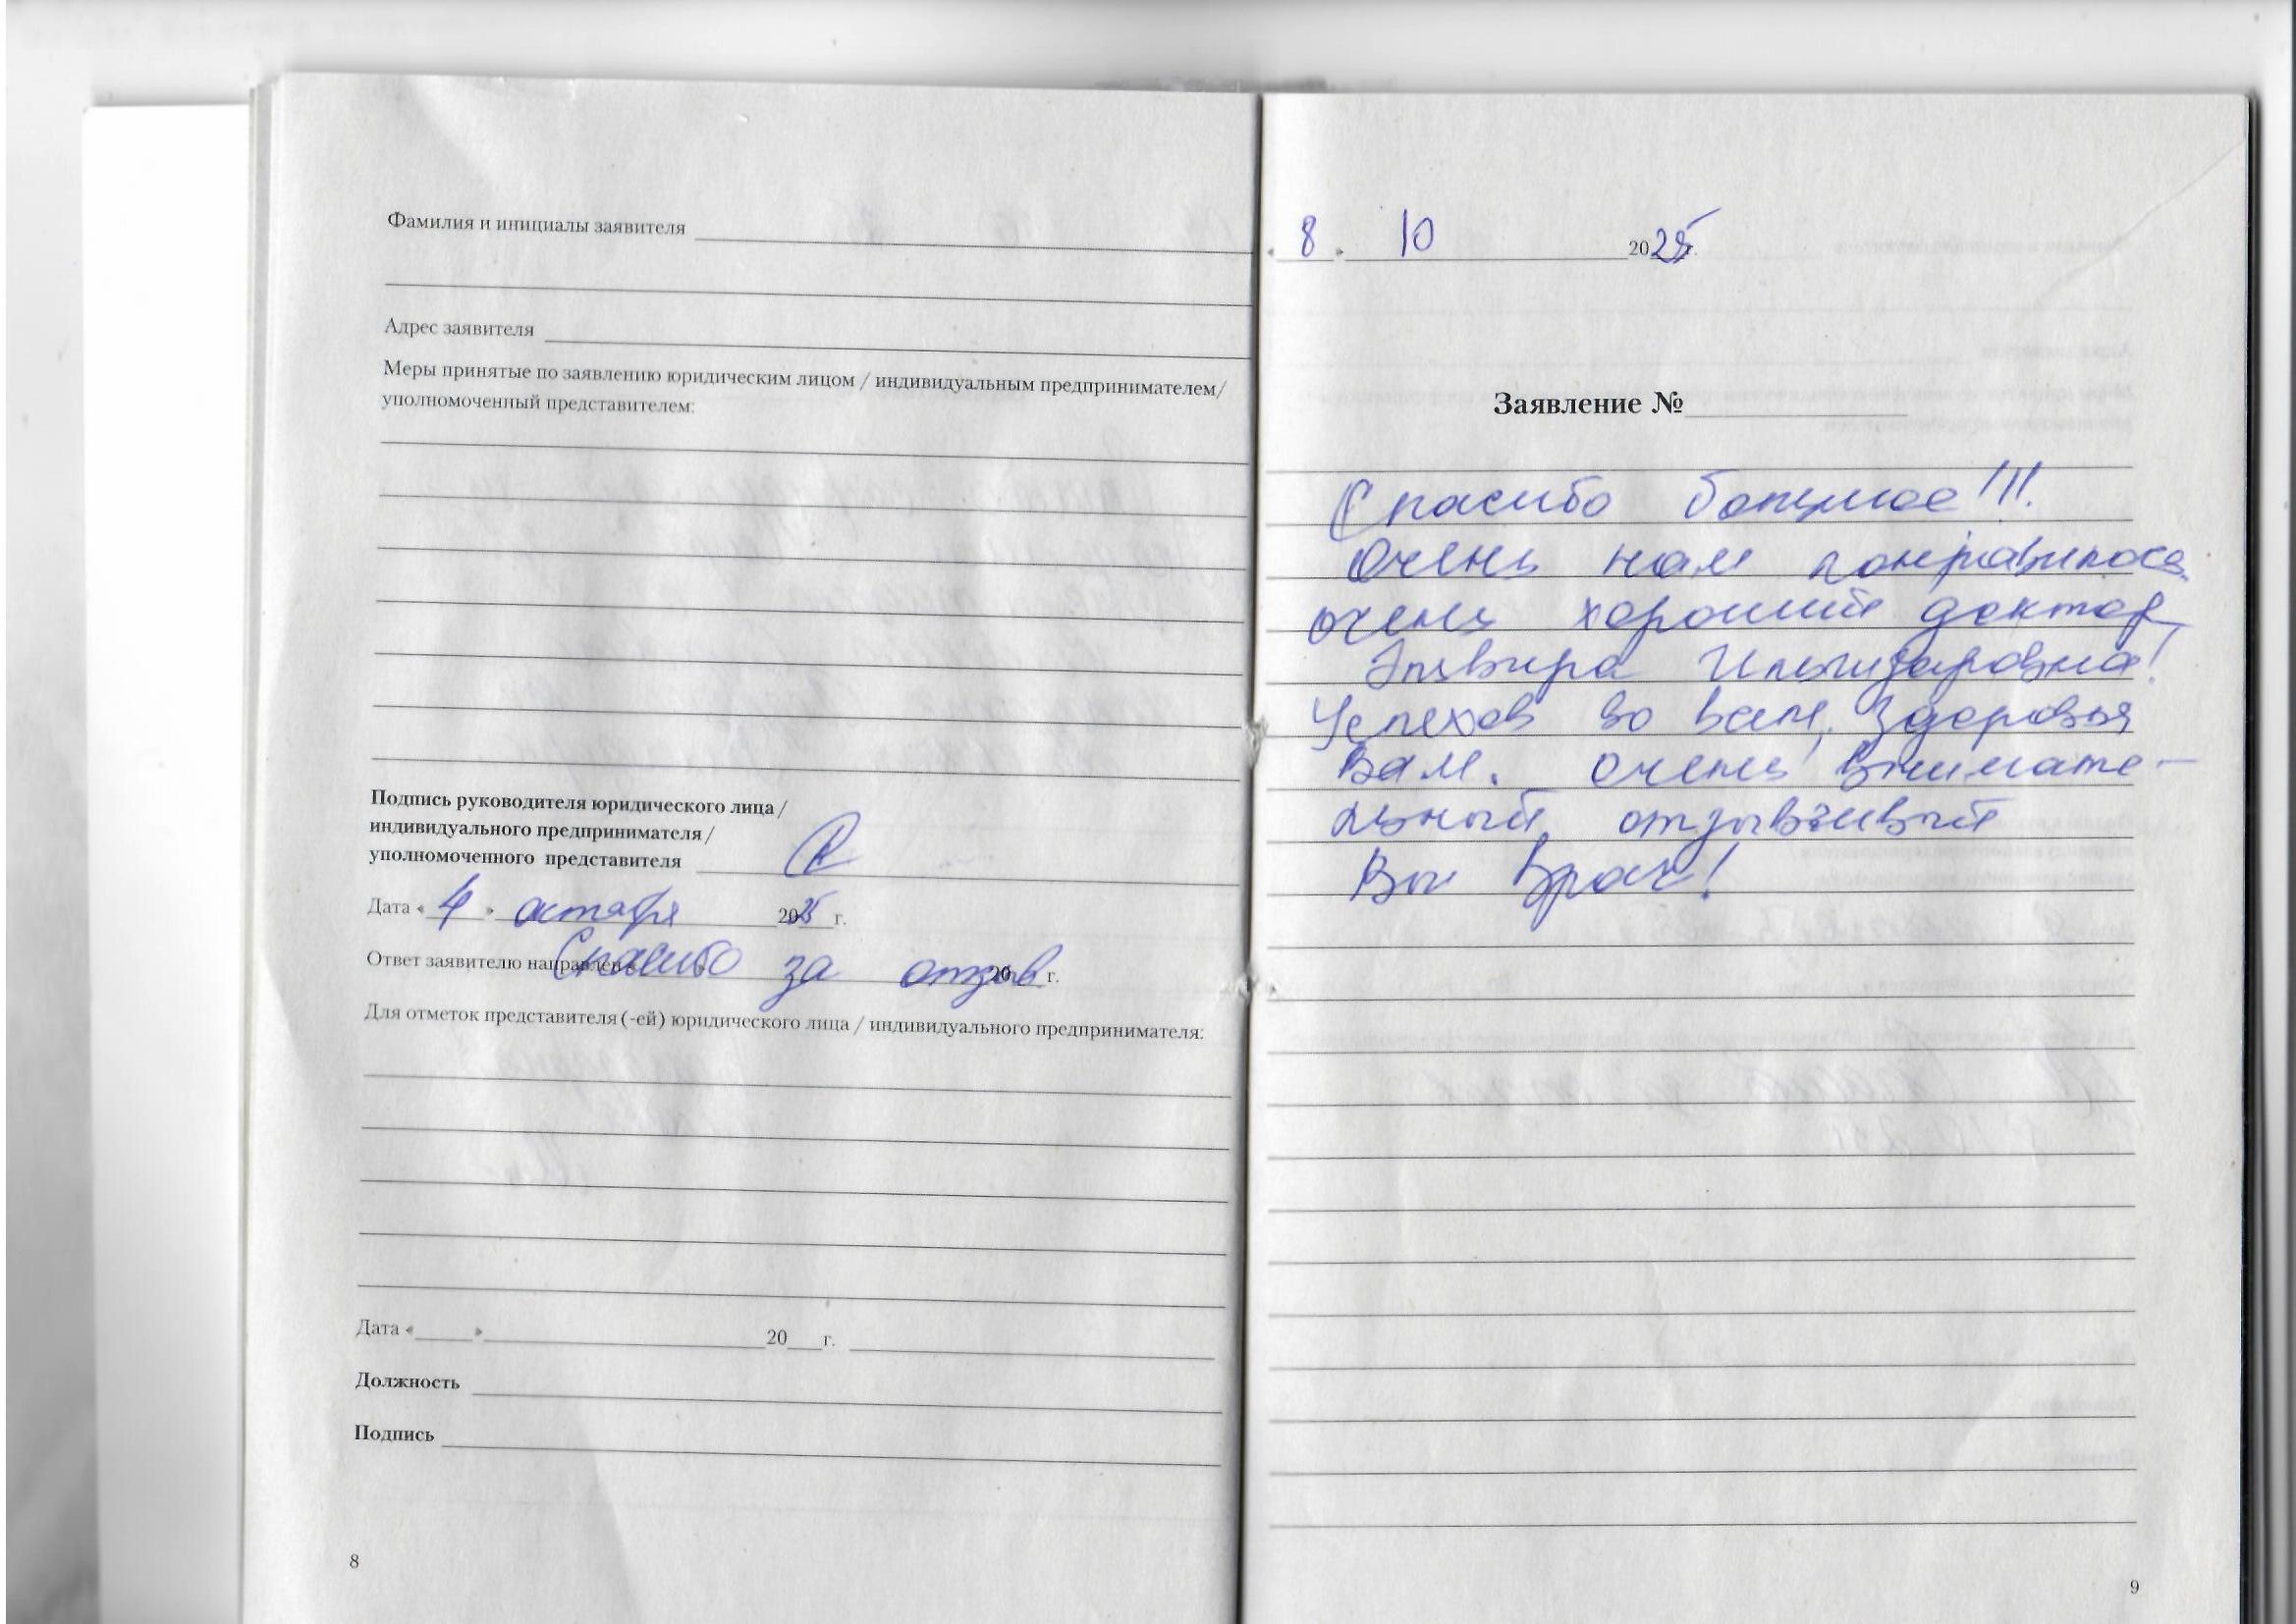 Фамилия и инициалы заявителя
Адрес заявителя
Меры принятые по заявлению юридическим лицом / индивидуальным предпринимателем/
уполномоченный представителем:
Подпись руководителя юридического лица /
индивидуального предпринимателя /
уполномоченного представителя
Дата «4» октября 2025 г.
Ответ заявителю направлен Спасибо за отзыв 20 г.
Для отметок представителя (-ей) юридического лица / индивидуального предпринимателя:
Дата « » 20 г.
Должность
Подпись
8
«8» 10 2025 г.
Заявление №
Спасибо большое!!!
Очень нам понравилось
очень хороший доктор
Эльвира Ильгизаровна!
Успехов во всем, Здоровья
Вам. Очень внимате-
льный отзывчивый
Вы врач!
9